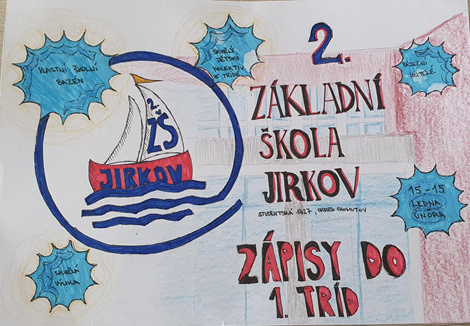 VLASTNÍ ŠKOLNÍ
BAZÉN
SKVĚLÝ
DĚTSKÝ
KOLEKTIV
2.
ZÁKLADNÍ
ŠKOLA
JIRKOV
STUDENTSKÁ 1427,
2.
ZŠ
JIRKOV
15-15
LEDNA
ÚNORA
SKVĚLÁ
VÝUKA
ZÁPISY DO
1. TŘÍD